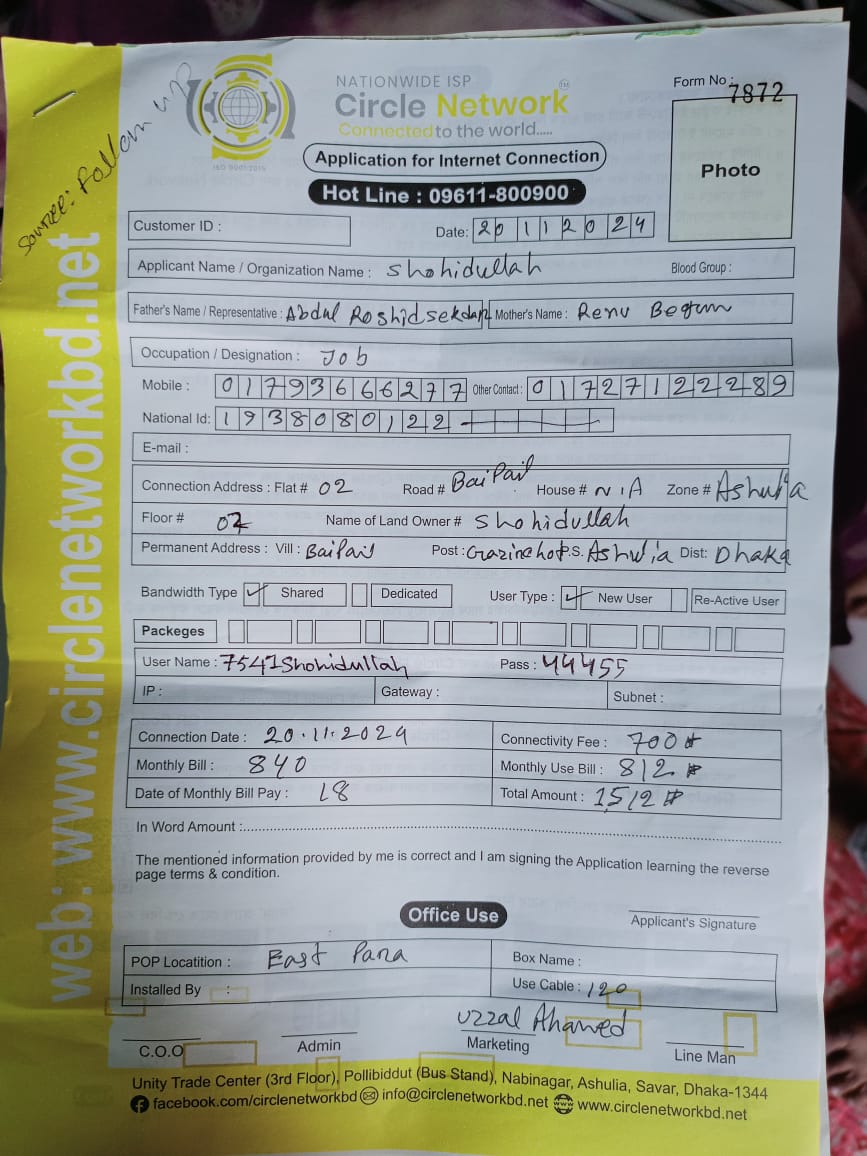 Source: Follow up
NATIONWIDE ISP
Circle Network TM
Connected to the world.....
ISO 9001:2015
Form No : 7872
Photo
Application for Internet Connection
Hot Line : 09611-800900
Customer ID :
Date: 20112024
Applicant Name / Organization Name : Shohidullah Blood Group :
Father's Name / Representative : Abdul Roshid sekdar Mother's Name : Renu Begum
Occupation / Designation : Job
Mobile : 01793666277 Other Contact : 01727122289
National Id: 1938080122
E-mail :
Connection Address : Flat # 02 Road # BaiPail House # N/A Zone # Ashulia
Floor # 02 Name of Land Owner # Shohidullah
Permanent Address : Vill : BaiPail Post : Gazirchot P.S. Ashulia Dist: Dhaka
Bandwidth Type Shared Dedicated User Type : New User Re-Active User
Packeges
User Name : 7541Shohidullah Pass : 44455
IP : Gateway : Subnet :
Connection Date : 20.11.2024 Connectivity Fee : 700
Monthly Bill : 840 Monthly Use Bill : 812
Date of Monthly Bill Pay : 18 Total Amount : 1512
In Word Amount :
The mentioned information provided by me is correct and I am signing the Application learning the reverse
page terms & condition.
Office Use
Applicant's Signature
POP Locatition : East Para Box Name :
Installed By : Use Cable : 120
Uzzal Ahamed
C.O.O Admin Marketing Line Man
Unity Trade Center (3rd Floor), Pollibiddut (Bus Stand), Nabinagar, Ashulia, Savar, Dhaka-1344
facebook.com/circlenetworkbd info@circlenetworkbd.net www.circlenetworkbd.net
web: www.circlenetworkbd.net